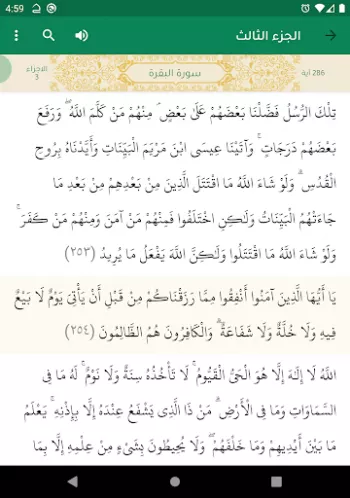 4:59
الجزء الثالث
286 آية
سورة البقرة
الاجزاء
3
تِلْكَ الرُّسُلُ فَضَّلْنَا بَعْضَهُمْ عَلَىٰ بَعْضٍ ۘ مِنْهُمْ مَنْ كَلَّمَ اللَّهُ ۖ وَرَفَعَ
بَعْضَهُمْ دَرَجَاتٍ ۚ وَآتَيْنَا عِيسَى ابْنَ مَرْيَمَ الْبَيِّنَاتِ وَأَيَّدْنَاهُ بِرُوحِ
الْقُدُسِ ۗ وَلَوْ شَاءَ اللَّهُ مَا اقْتَتَلَ الَّذِينَ مِنْ بَعْدِهِمْ مِنْ بَعْدِ مَا
جَاءَتْهُمُ الْبَيِّنَاتُ وَلَٰكِنِ اخْتَلَفُوا فَمِنْهُمْ مَنْ آمَنَ وَمِنْهُمْ مَنْ كَفَرَ ۚ
وَلَوْ شَاءَ اللَّهُ مَا اقْتَتَلُوا وَلَٰكِنَّ اللَّهَ يَفْعَلُ مَا يُرِيدُ (٢٥٣)
يَا أَيُّهَا الَّذِينَ آمَنُوا أَنْفِقُوا مِمَّا رَزَقْنَاكُمْ مِنْ قَبْلِ أَنْ يَأْتِيَ يَوْمٌ لَا بَيْعٌ
فِيهِ وَلَا خُلَّةٌ وَلَا شَفَاعَةٌ ۗ وَالْكَافِرُونَ هُمُ الظَّالِمُونَ (٢٥٤)
اللَّهُ لَا إِلَٰهَ إِلَّا هُوَ الْحَيُّ الْقَيُّومُ ۚ لَا تَأْخُذُهُ سِنَةٌ وَلَا نَوْمٌ ۚ لَهُ مَا فِي
السَّمَاوَاتِ وَمَا فِي الْأَرْضِ ۗ مَنْ ذَا الَّذِي يَشْفَعُ عِنْدَهُ إِلَّا بِإِذْنِهِ ۚ يَعْلَمُ
مَا بَيْنَ أَيْدِيهِمْ وَمَا خَلْفَهُمْ ۖ وَلَا يُحِيطُونَ بِشَيْءٍ مِنْ عِلْمِهِ إِلَّا بِمَا